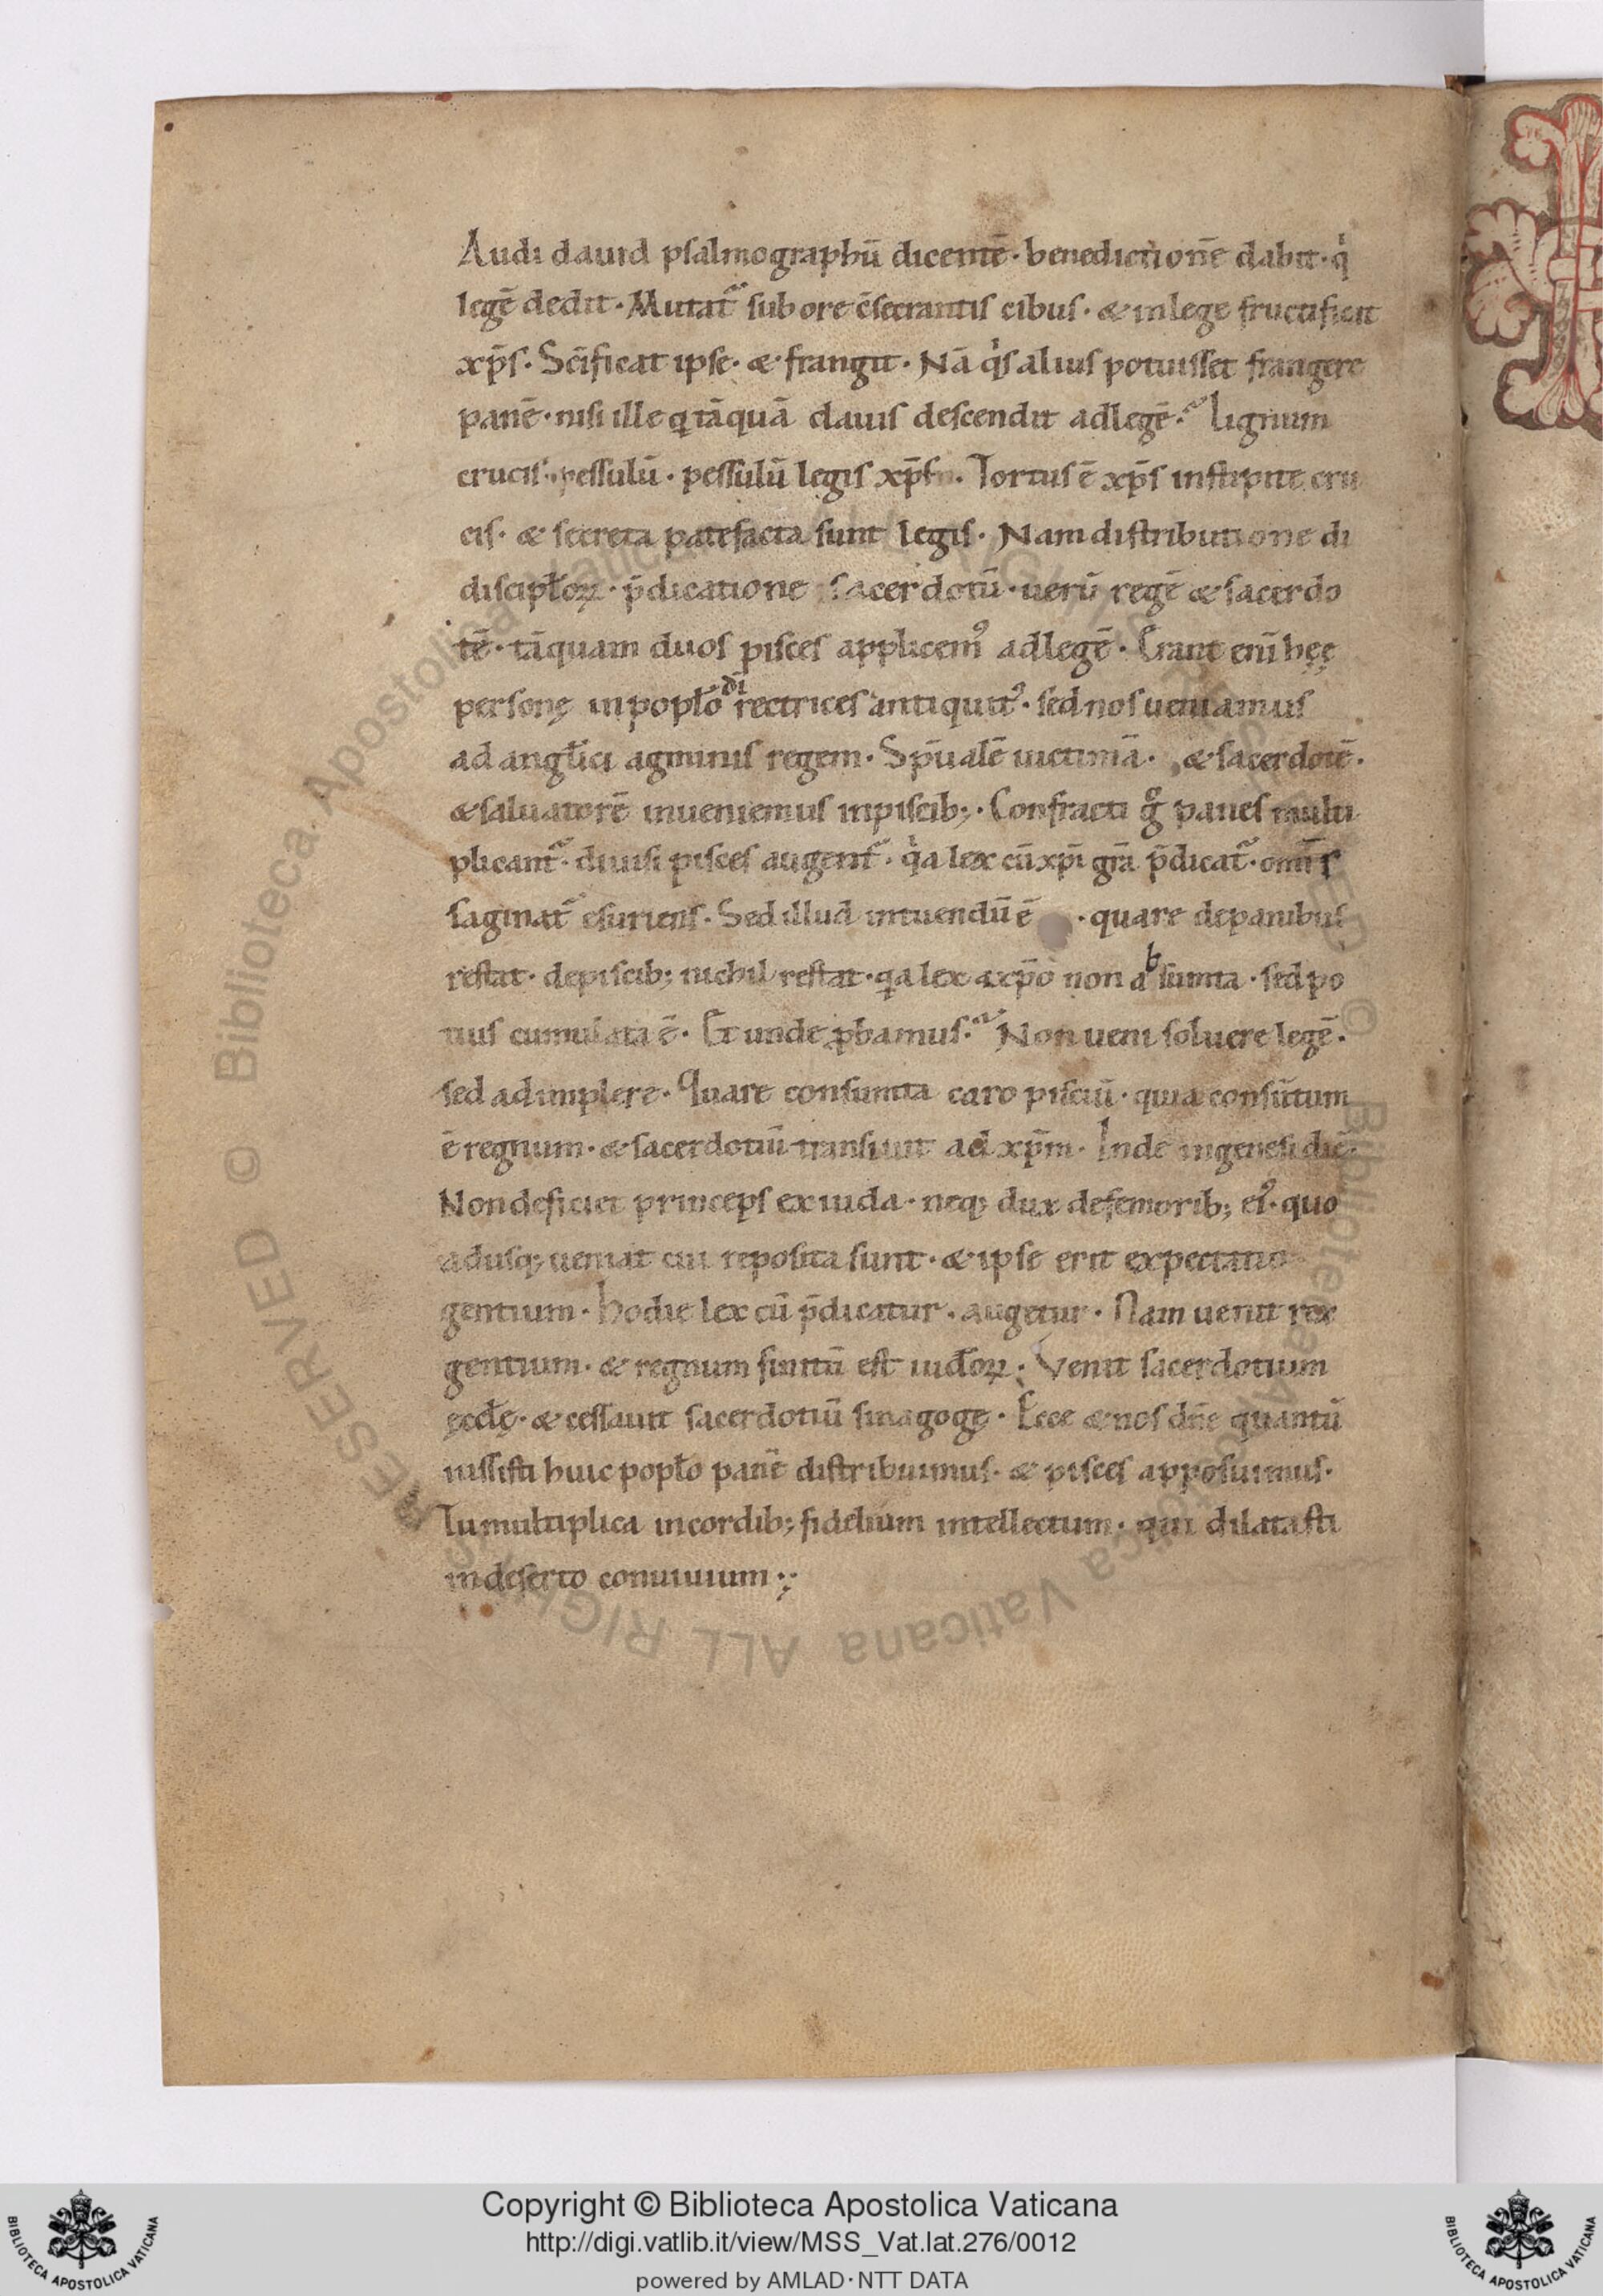 Audi dauid psalmographū dicentē · benedictionē dabit · qͥ
legē dedit · Mutat᷒ sub ore ɔ̄secrantis cibus · & in lege fructificat
xp̄s · Sc̄ificat ipse · & frangit · Nā qͥs alius potuisset frangere
panē · nisi ille q tāquā clauis descendit ad legē · Lignum
crucis · pessulū · pessulū legis xp̄s · Tortus ē xp̄s in stipite cru
cis · & secreta patefacta sunt legis · Nam distributione di
discipłoꝝ · p̄dicatione sacerdotū · uerū regē & sacerdo
tē · tāquam duos pisces applicemꝰ ad legē · Erant eni̅ hęę
personę in popło di rectrices antiquitꝰ · sed nos ueniamus
ad angłici agminis regem · Sp̄ualē uictimā · & sacerdotē ·
& saluatorē inueniemus in piscib; · Confracti gͦ panes multi
plicant᷒ · diuisi pisces augent᷒ · qͥa lex cū xp̄i gr̄a p̄dicat᷒ · omi̅s
saginat᷒ esuriens · Sed illud intuendū ē · quare de panibus
restat · de piscib; nichil restat · qa lex a xp̄o non absumta · sed po
tius cumulata ē · Et unde ꝓbamus · Non ueni soluere legē ·
sed adimplere · Quare consumta caro pisciū · quia consūtum
ē regnum · & sacerdotiū transiuit ad xp̄m · Inde in genesi dic̄ ·
Non deficiet princeps ex iuda · neq; dux de femorib; eiꝰ · quo
adusq; ueniat cui reposita sunt · & ipse erit expectatio
gentium · Hodie lex cū p̄dicatur · augetur · Nam uenit rex
gentium · & regnum finitū est iudoꝝ · Venit sacerdotium
ęccłę · & cessauit sacerdotiū sinagogę · Ecce & nos dn̄e quantū
iussisti huic popło panē distribuimus · & pisces apposuimus ·
Tu multiplica in cordib; fidelium intellectum · qui dilatasti
in deserto conuiuium ·;
Copyright © Biblioteca Apostolica Vaticana
http://digi.vatlib.it/view/MSS_Vat.lat.276/0012
powered by AMLAD·NTT DATA
BIBLIOTECA APOSTOLICA VATICANA
BIBLIOTECA APOSTOLICA VATICANA
© Biblioteca Apostolica Vaticana ALL RIGHTS RESERVED